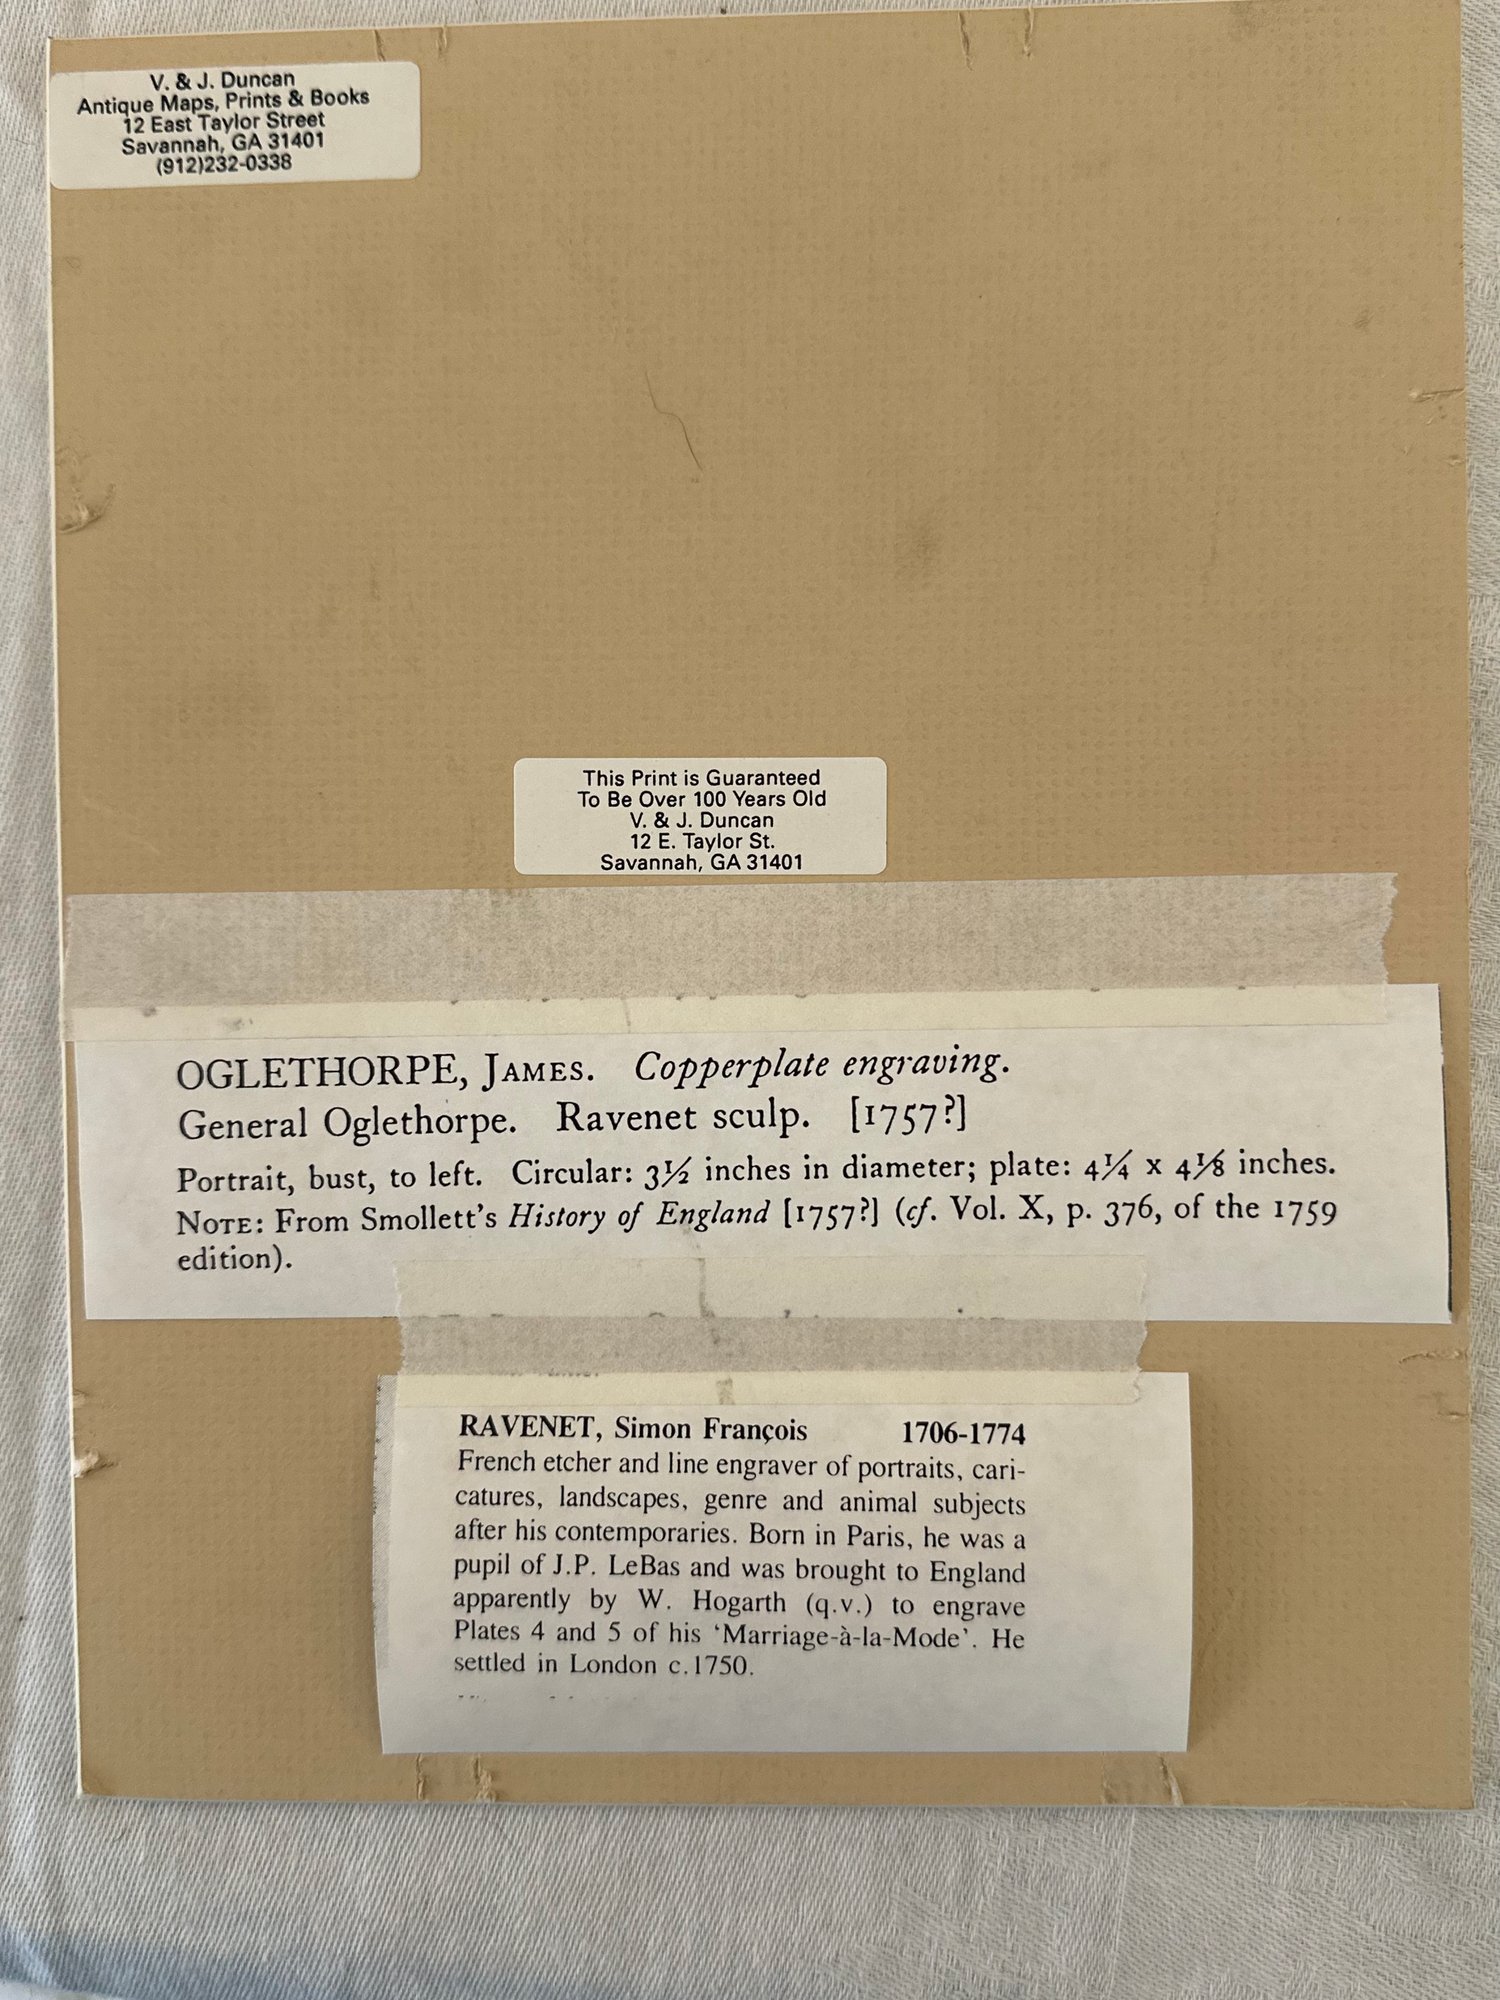 V. & J. Duncan
Antique Maps, Prints & Books
12 East Taylor Street
Savannah, GA 31401
(912)232-0338
This Print is Guaranteed
To Be Over 100 Years Old
V. & J. Duncan
12 E. Taylor St.
Savannah, GA 31401
OGLETHORPE, JAMES. Copperplate engraving.
General Oglethorpe. Ravenet sculp. [1757?]
Portrait, bust, to left. Circular: 3½ inches in diameter; plate: 4¼ x 4⅛ inches.
NOTE: From Smollett's History of England [1757?] (cf. Vol. X, p. 376, of the 1759
edition).
RAVENET, Simon François 1706-1774
French etcher and line engraver of portraits, cari-
catures, landscapes, genre and animal subjects
after his contemporaries. Born in Paris, he was a
pupil of J.P. LeBas and was brought to England
apparently by W. Hogarth (q.v.) to engrave
Plates 4 and 5 of his 'Marriage-à-la-Mode'. He
settled in London c.1750.